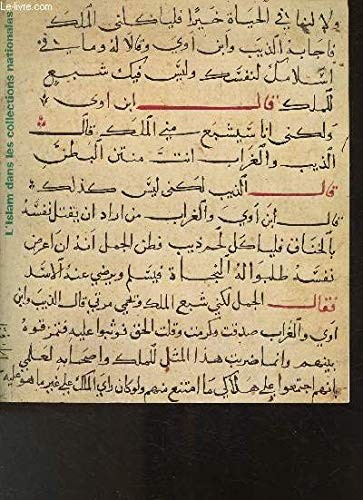 Le-livre.com
L'Islam dans les collections nationales
ولا لنا في الحياة خيرًا فلياكلني الملك
فاجابه الذيب وابن اوي وقالا له وما في
اسلامك لنفسك وليس فيك شبع
للملك قال ابن اوي
ولكني انا سيشبع مني الملك قال
الذيب والغراب انت منتن البطن
قال الذيب لكني ليس كذلك
قال ابن آوي والغراب من اراد ان يقتل نفسه
بالخناق فلياكل لحم ذيب فظن الجمل انه ان اعرض
نفسه طلبوا له النجاة فيسلم ويرضي عنه الاسد
فقال الجمل لكني شبع الملك ولحمي مري قال الذيب وابن
اوي والغراب صدقت وكرمت وقلت الحق فوثبوا عليه فمزقوه
بينهم وانما ضربت هذا المثل للملك واصحابه لعلمي
بانهم اجتمعوا علي هلاكي ما امتنع منهم ولو كان راي الملك علي غير ما هو عليه